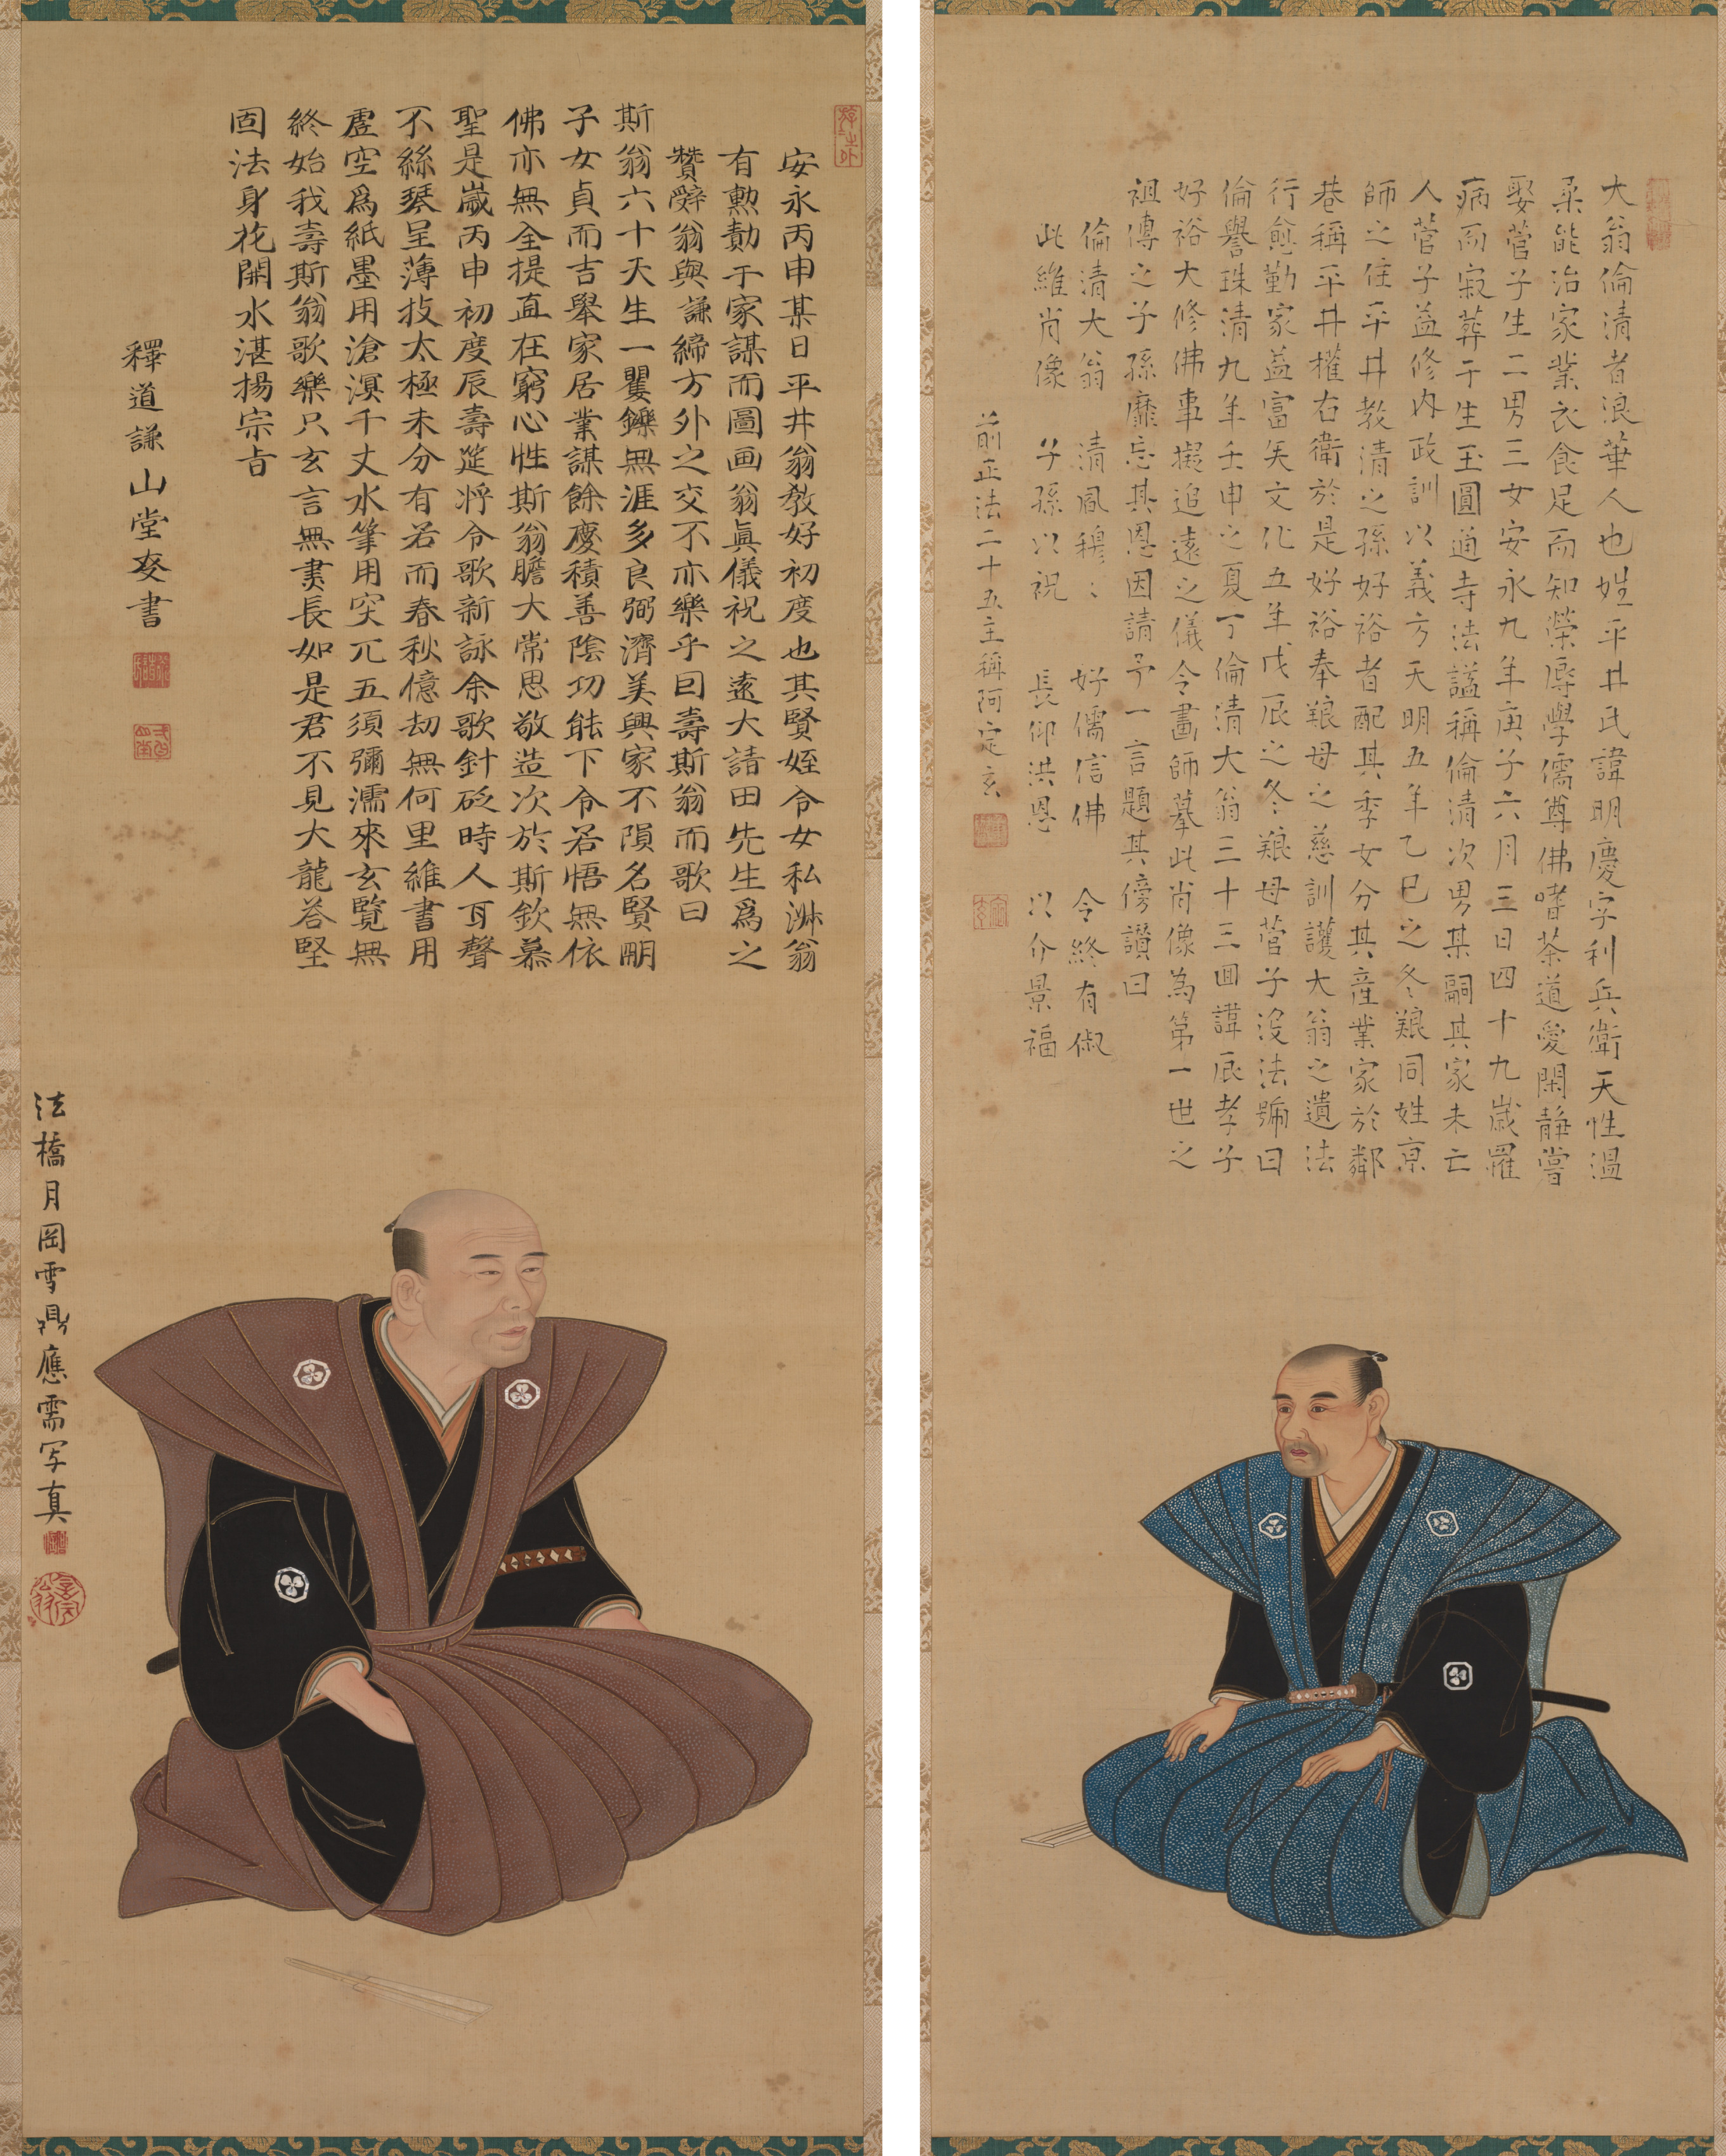 大翁倫清者浪華人也姓平井氏諱明慶字利兵衛天性温
柔能治家業衣食足而知榮辱學儒尊佛嗜茶道愛閑静嘗
娶菅子生二男三女安永九年庚子六月三日四十九歳罹
病而寂葬于生玉圓通寺法謚稱倫清次男某嗣其家未亡
人菅子益修内政訓以義方天明五年乙巳之冬親同姓京
師之住平井教清之孫好裕者配其季女分其産業家於鄰
巷稱平井權右衛於是好裕奉親母之慈訓護大翁之遺法
行愈勤家益富矣文化五年戊辰之冬親母菅子沒法号曰
倫譽珠清九年壬申之夏丁倫清大翁三十三回諱辰孝子
好裕大修佛事擬追遠之儀令畫師摹此肖像為第一世之
祖傳之子孫靡忘其恩因請予一言題其傍讃曰
倫清大翁 清風穆々 好儒信佛 令終有俶
此維肖像 子孫以祝 長仰洪恩 以介景福
前正法二十五主稱阿定玄
安永丙申某日平井翁教好初度也其賢姪令女私淑翁
有勲勣于家謀而圖画翁眞儀祝之遠大請田先生爲之
贊辭翁與謙締方外之交不亦樂乎曰壽斯翁而歌曰
斯翁六十天生一矍鑠無涯多良弼濟美興家不隕名賢嗣
子女貞而吉舉家居業謀餘慶積善陰功能下令若悟無依
佛亦無全提直在窮心性斯翁膽大常思敬造次於斯欽慕
聖是歳丙申初度辰壽筵将令歌新詠余歌針砭時人耳聲
不絲琴呈薄技太極未分有若而春秋億劫無何里維書用
虚空爲紙墨用滄溟千丈水筆用突兀五須彌濡來玄覽無
終始我壽斯翁歌樂只玄言無書長如是君不見大龍荅堅
固法身花開水湛揚宗旨
釋道謙山堂㕝書
法橋月岡雪鼎應需写真